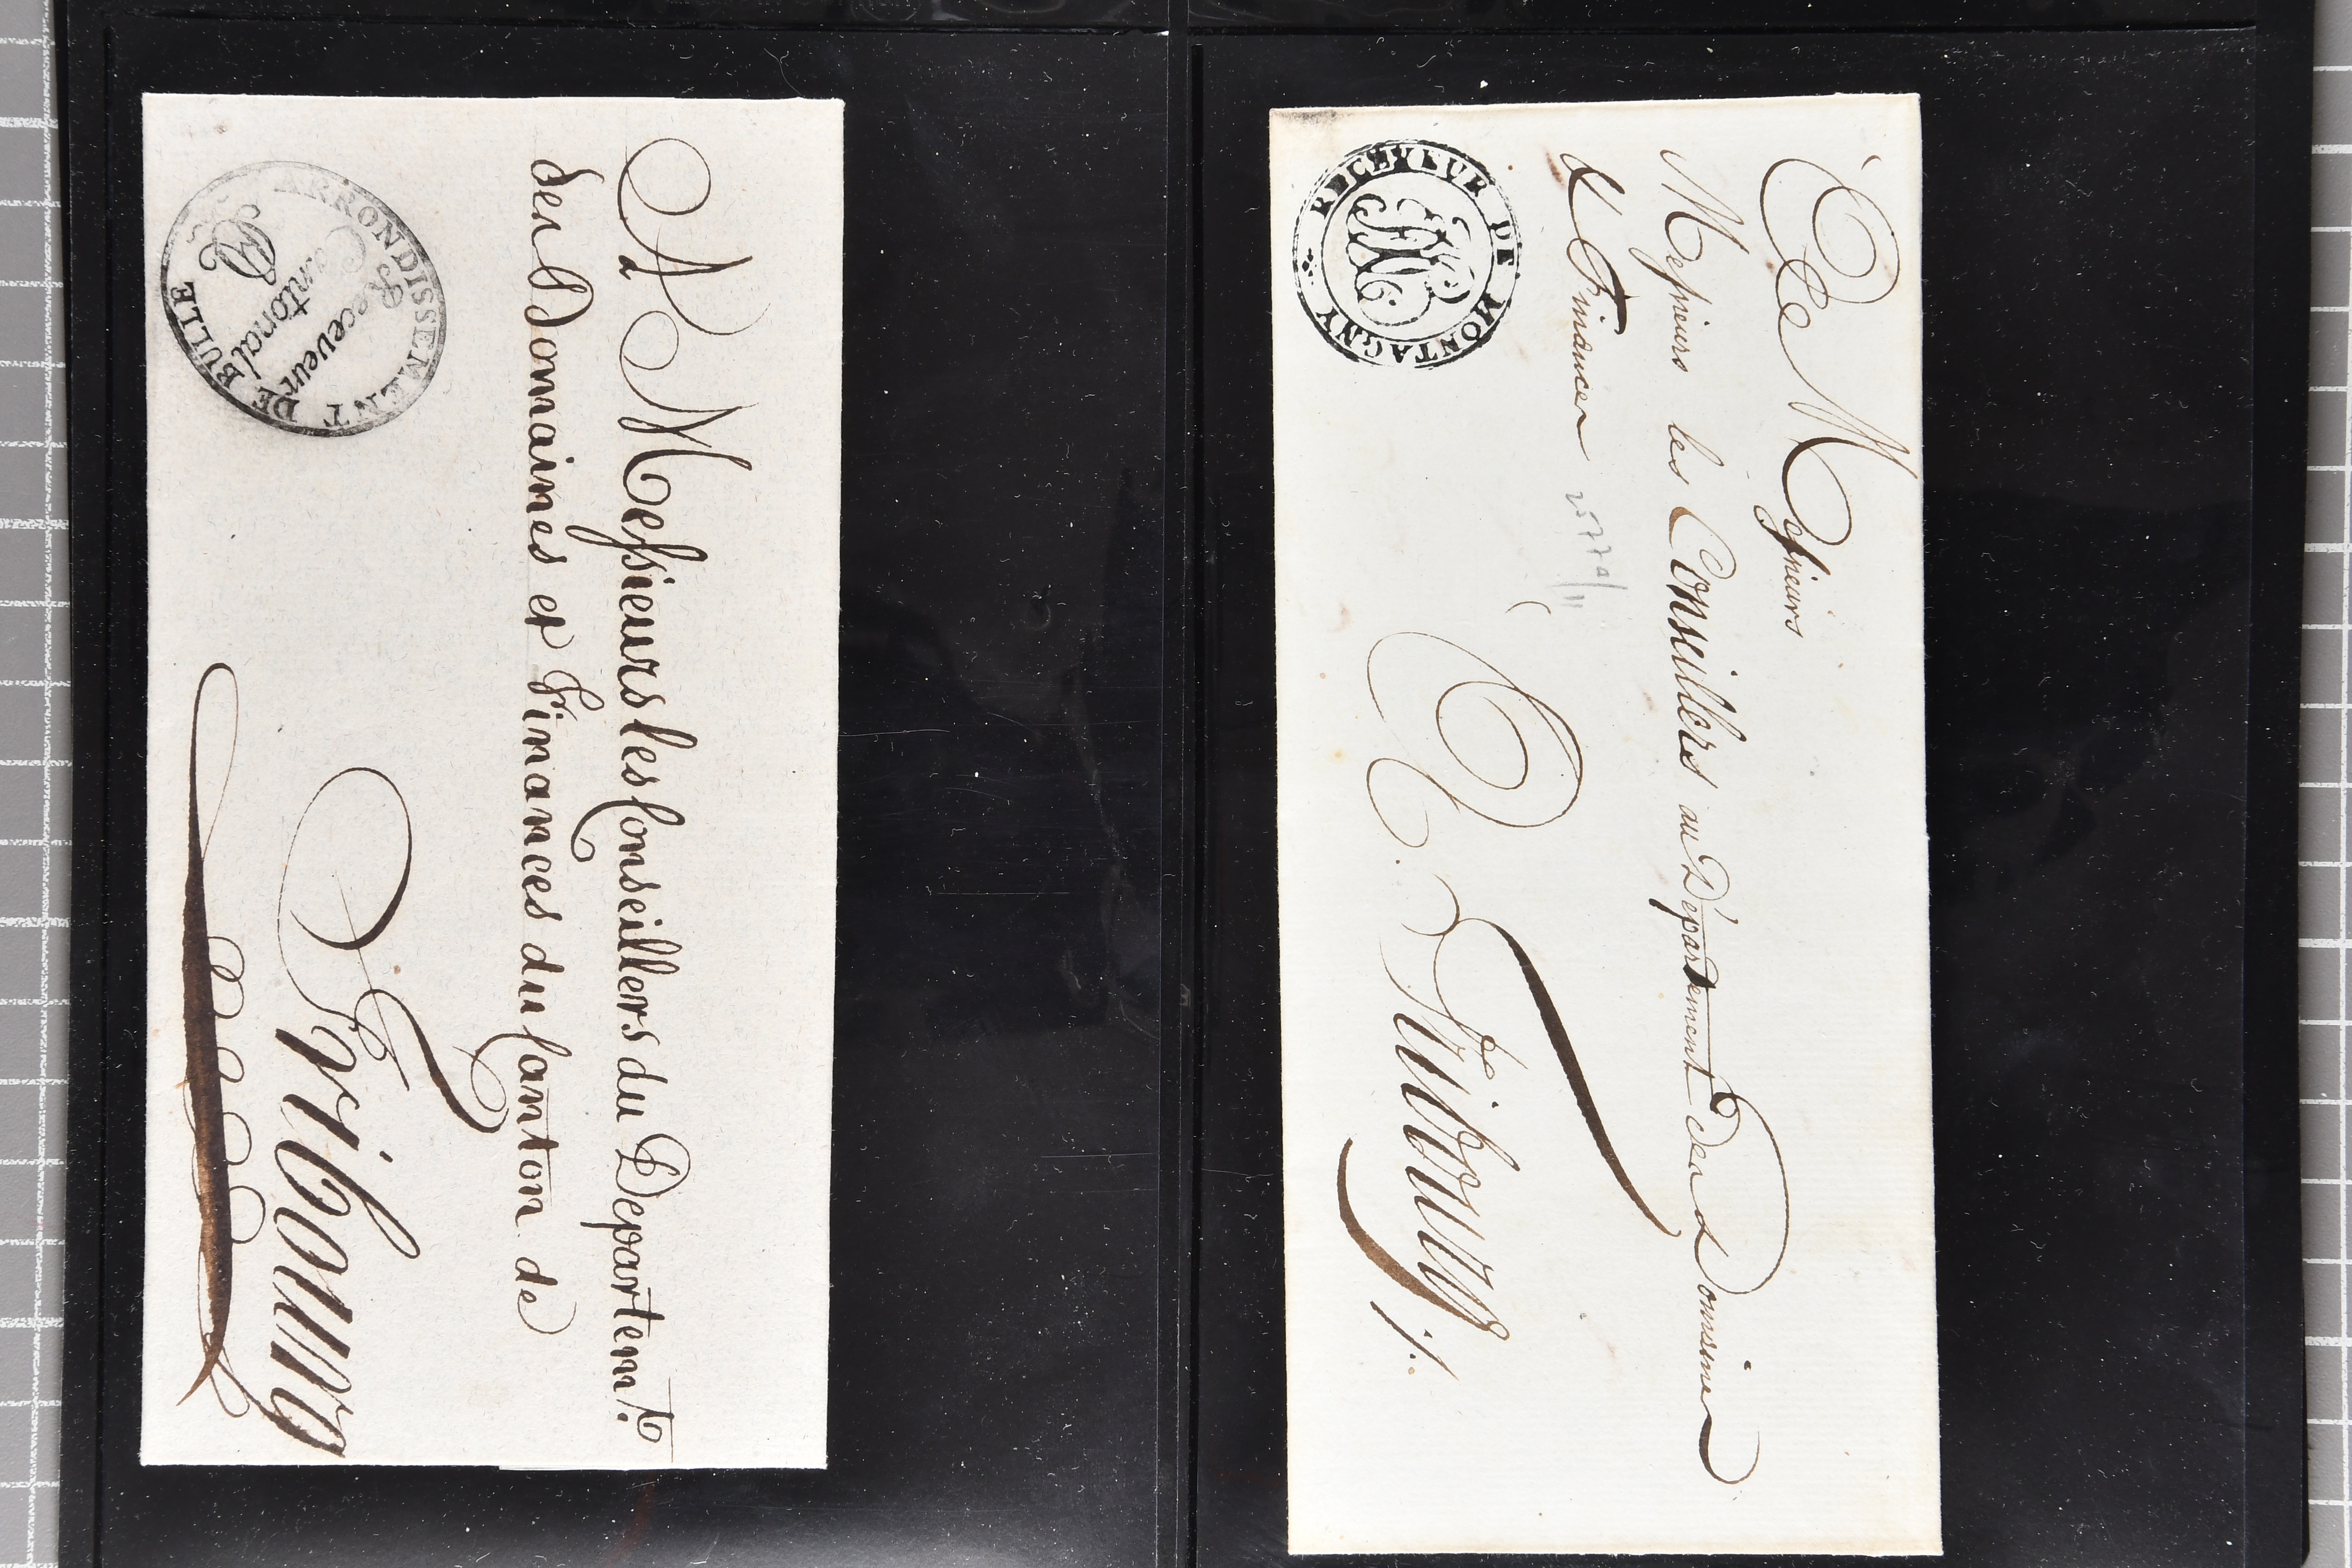 A Messieurs les Conseillers du Departem.t
des Domaines et Finances du Canton de
Fribourg
ARRONDISSEMENT DE BULLE
Receveur
Cantonal
A Messieurs
Messieurs les Conseillers au Département des Domaines
& Finances
A. Fribourg /.
RECEVEUR DE MONTAGNY